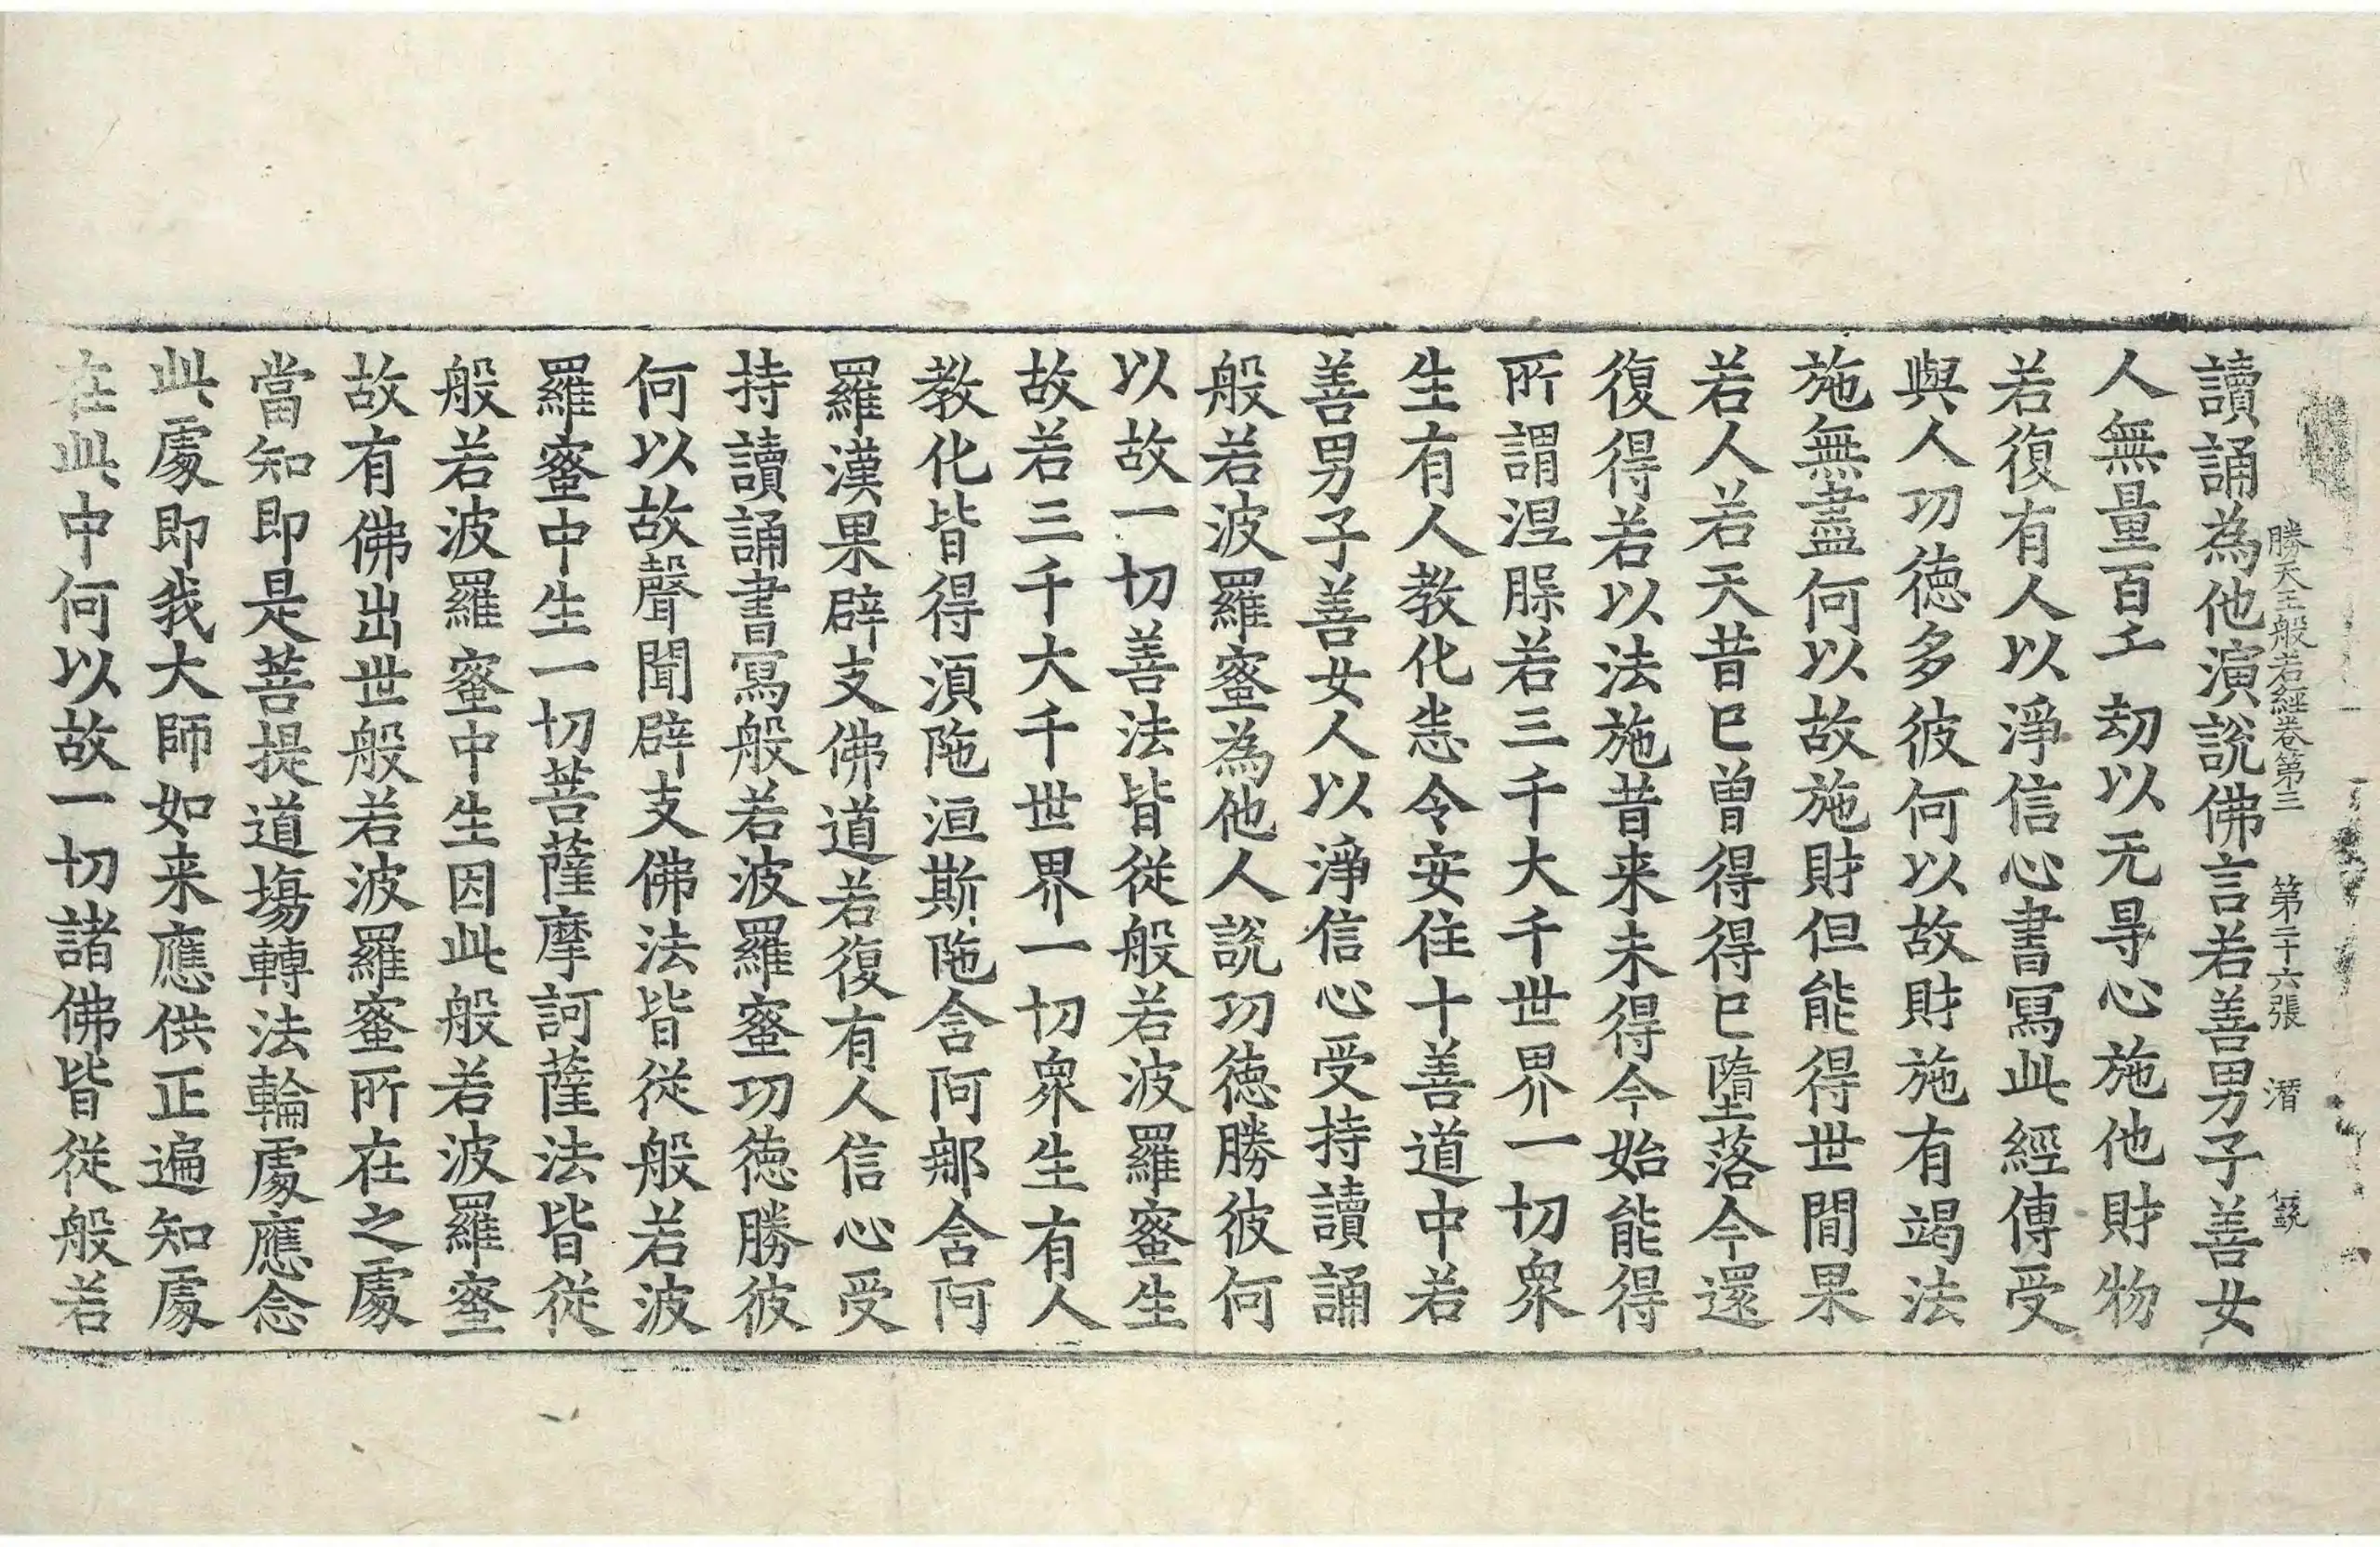 勝天王般若經卷第三 第二十六張 潛
讀誦為他演說佛言若善男子善女
人無量百千劫以无㝵心施他財物
若復有人以淨信心書寫此經傳受
與人功德多彼何以故財施有竭法
施無盡何以故施財但能得世間果
若人若天昔已曾得得已墮落今還
復得若以法施昔来未得今始能得
所謂涅槃若三千大千世界一切衆
生有人教化悉令安住十善道中若
善男子善女人以淨信心受持讀誦
般若波羅蜜為他人說功德勝彼何
以故一切善法皆從般若波羅蜜生
故若三千大千世界一切衆生有人
教化皆得湏陁洹斯陁含阿那含阿
羅漢果辟支佛道若復有人信心受
持讀誦書寫般若波羅蜜功德勝彼
何以故聲聞辟支佛法皆從般若波
羅蜜中生一切菩薩摩訶薩法皆從
般若波羅蜜中生因此般若波羅蜜
故有佛出世般若波羅蜜所在之處
當知即是菩提道場轉法輪處應念
此處即我大師如来應供正遍知處
在此中何以故一切諸佛皆從般若